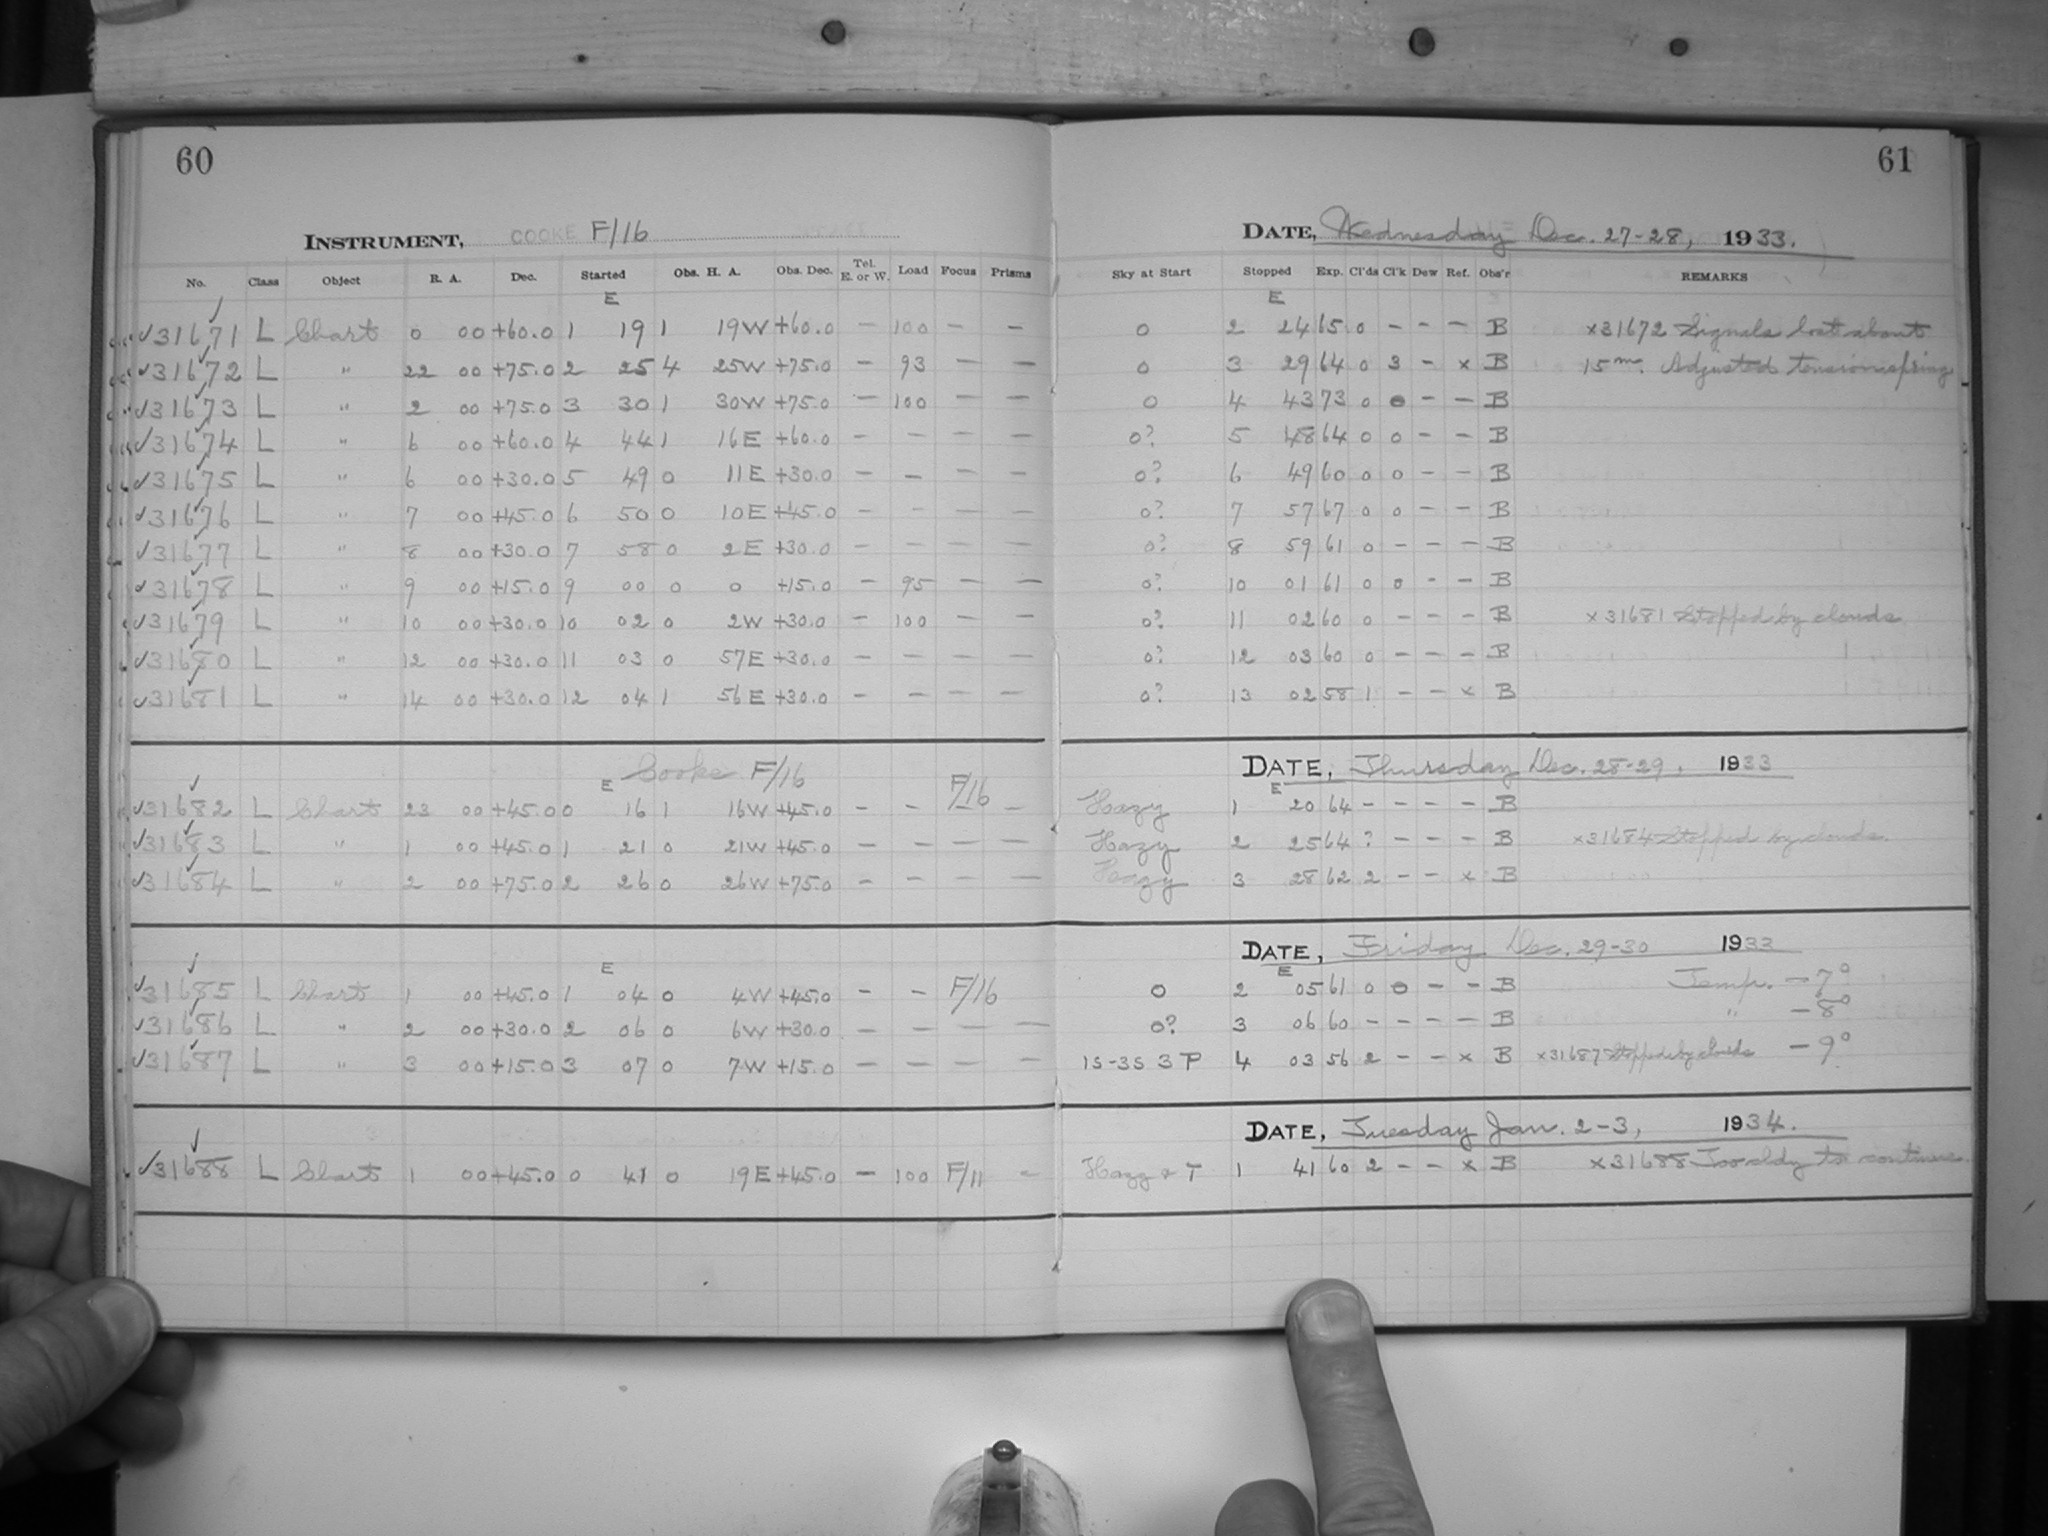 60
INSTRUMENT, COOKE F/16
No. Class Object R. A. Dec. Started Obs. H. A. Obs. Dec. Tel. E. or W. Load Focus Prisms
E
✓31671 L Chart 0 00 +60.0 1 19 1 19W +60.0 — 100 — —
✓31672 L " 22 00 +75.0 2 25 4 25W +75.0 — 93 — —
✓31673 L " 2 00 +75.0 3 30 1 30W +75.0 — 100 — —
✓31674 L " 6 00 +60.0 4 44 1 16E +60.0 — — — —
✓31675 L " 6 00 +30.0 5 49 0 11E +30.0 — — — —
✓31676 L " 7 00 +45.0 6 50 0 10E +45.0 — — — —
✓31677 L " 8 00 +30.0 7 58 0 2E +30.0 — — — —
✓31678 L " 9 00 +15.0 9 00 0 0 +15.0 — 95 — —
✓31679 L " 10 00 +30.0 10 02 0 2W +30.0 — 100 — —
✓31680 L " 12 00 +30.0 11 03 0 57E +30.0 — — — —
✓31681 L " 14 00 +30.0 12 04 1 56E +30.0 — — — —
Cooke F/16
E
✓31682 L Chart 23 00 +45.0 0 16 1 16W +45.0 — — F/16 —
✓31683 L " 1 00 +45.0 1 21 0 21W +45.0 — — — —
✓31684 L " 2 00 +75.0 2 26 0 26W +75.0 — — — —
E
✓31685 L Chart 1 00 +45.0 1 04 0 4W +45.0 — — F/16
✓31686 L " 2 00 +30.0 2 06 0 6W +30.0 — — — —
✓31687 L " 3 00 +15.0 3 07 0 7W +15.0 — — — —
✓31688 L Chart 1 00 +45.0 0 41 0 19E +45.0 — 100 F/11 —
61
DATE, Wednesday Dec. 27-28, 1933.
Sky at Start Stopped Exp. Cl'ds Cl'k Dew Ref. Obs'r REMARKS
E
0 2 24 65 0 — — — B ×31672 Signals lost about
0 3 29 64 0 3 — × B 15m. Adjusted tension spring
0 4 43 73 0 0 — — B
0? 5 48 64 0 0 — — B
0? 6 49 60 0 0 — — B
0? 7 57 67 0 0 — — B
0? 8 59 61 0 — — — B
0? 10 01 61 0 0 — — B
0? 11 02 60 0 — — — B ×31681 Stopped by clouds
0? 12 03 60 0 — — — B
0? 13 02 58 1 — — × B
DATE, Thursday Dec. 28-29, 1933
E
Hazy 1 20 64 — — — — B
Hazy 2 25 64 ? — — — B ×31684 Stopped by clouds.
Hazy 3 28 62 2 — — × B
DATE, Friday Dec. 29-30 1933
E
0 2 05 61 0 0 — — B Temp. —7°
0? 3 06 60 — — — — B " —8°
1S-3S 3 P 4 03 56 2 — — × B ×31687 Stopped by clouds —9°
DATE, Tuesday Jan. 2-3, 1934.
Hazy & T 1 41 60 2 — — × B ×31688 Too cldy to continue.